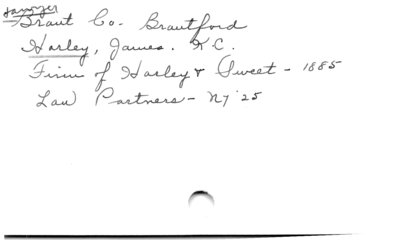 Lawyer
Brant Co. Brantford
Harley, James. K.C.
Firm of Harley & Sweet - 1885
Law Partners - N7 '25